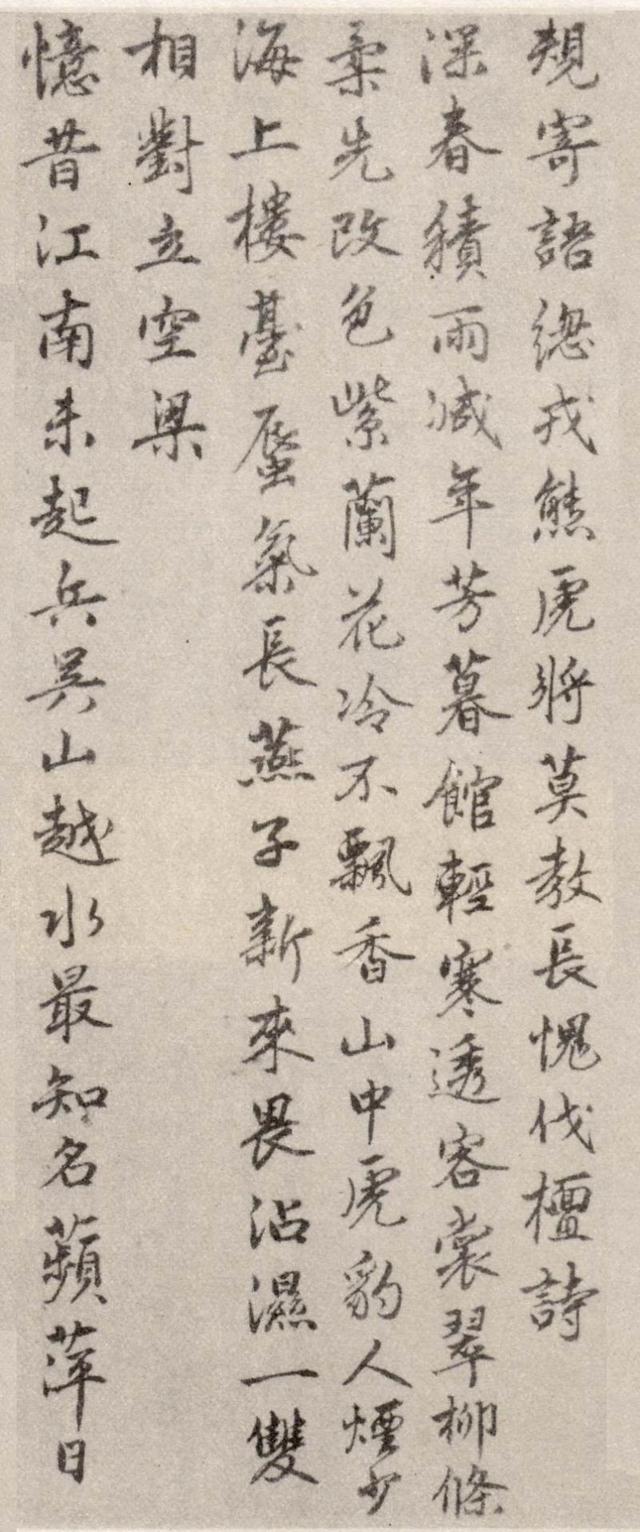 規寄語總戎熊虎將莫教長愧伐檀詩
深春積雨減年芳暮館輕寒透客裳翠柳條
柔先改色紫蘭花冷不飄香山中虎豹人煙少
海上樓臺蜃氣長燕子新來畏沾濕一雙
相對立空梁
憶昔江南未起兵吳山越水最知名蘋萍日